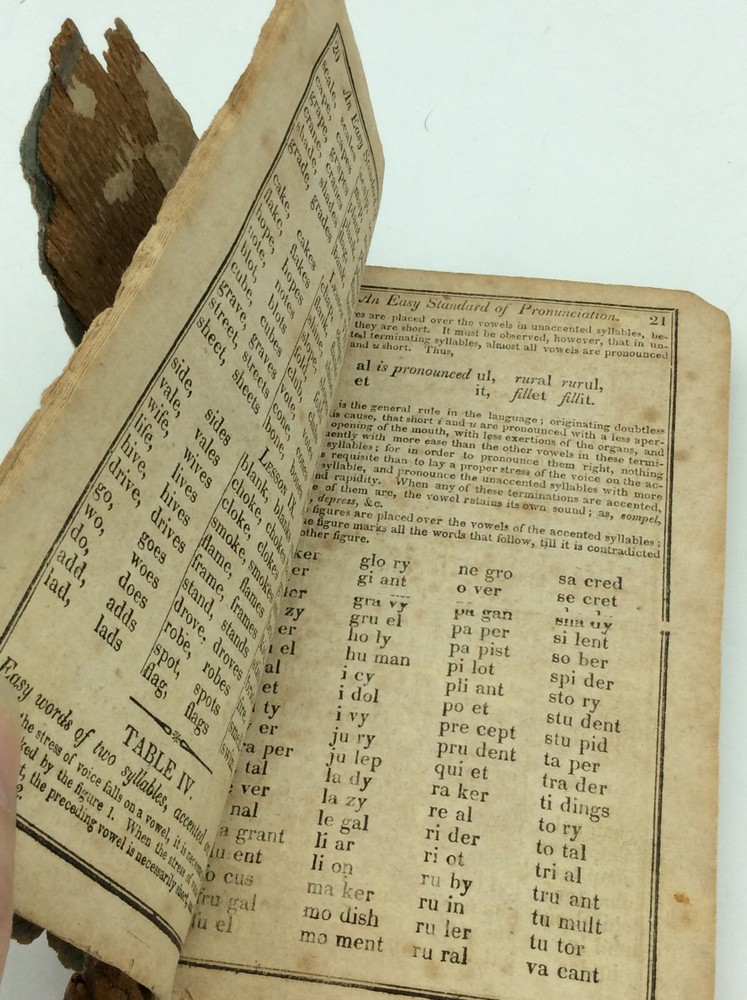 20 An Easy Standard
scale, scales
cape, capes
grape, grapes
crane, cranes
shade, shades
grade, grades
cake, cakes
flake, flakes
hope, hopes
note, notes
blot, blots
cube, cubes
grave, graves
street, streets
sheet, sheets
side, sides
vale, vales
wife, wives
life, lives
hive, hives
drive, drives
go, goes
wo, woes
do, does
add, adds
lad, lads
club,
vote,
cone,
bone,
LESSON IX.
blank, blanks
choke, chokes
cloke, clokes
smoke, smokes
flame, flames
frame, frames
stand, stands
drove, droves
robe, robes
spot, spots
flag, flags
TABLE IV.
Easy words of two syllables, accented
the stress of voice falls on a vowel, it is
ked by the figure 1. When the stress of
the preceding vowel is necessarily short,
An Easy Standard of Pronunciation. 21
es are placed over the vowels in unaccented syllables, be-
they are short. It must be observed, however, that in un-
ted terminating syllables, almost all vowels are pronounced
and u short. Thus,
al is pronounced ul, rural rurul,
et it, fillet fillit.
is the general rule in the language; originating doubtless
is cause, that short i and u are pronounced with a less aper-
opening of the mouth, with less exertions of the organs, and
uently with more ease than the other vowels in these termi-
syllables; for in order to pronounce them right, nothing
s requisite than to lay a proper stress of the voice on the ac-
syllable, and pronounce the unaccented syllables with more
nd rapidity. When any of these terminations are accented,
e of them are, the vowel retains its own sound; as, compel,
, depress, &c.
figures are placed over the vowels of the accented syllables;
ne figure marks all the words that follow, till it is contradicted
other figure.
ker glo ry ne gro sa cred
er gi ant o ver se cret
ter gra vy pa gan sha dy
zy gru el pa per si lent
er ho ly pa pist so ber
el hu man pi lot spi der
al i cy pli ant sto ry
et i dol po et stu dent
ty i vy pre cept stu pid
er ju ry pru dent ta per
a per ju lep qui et tra der
tal la dy ra ker ti dings
ver la zy re al to ry
nal le gal ri der to tal
a grant li ar ri ot tri al
lu ent li on ru by tru ant
o cus ma ker ru in tu mult
fru gal mo dish ru ler tu tor
fu el mo ment ru ral va cant